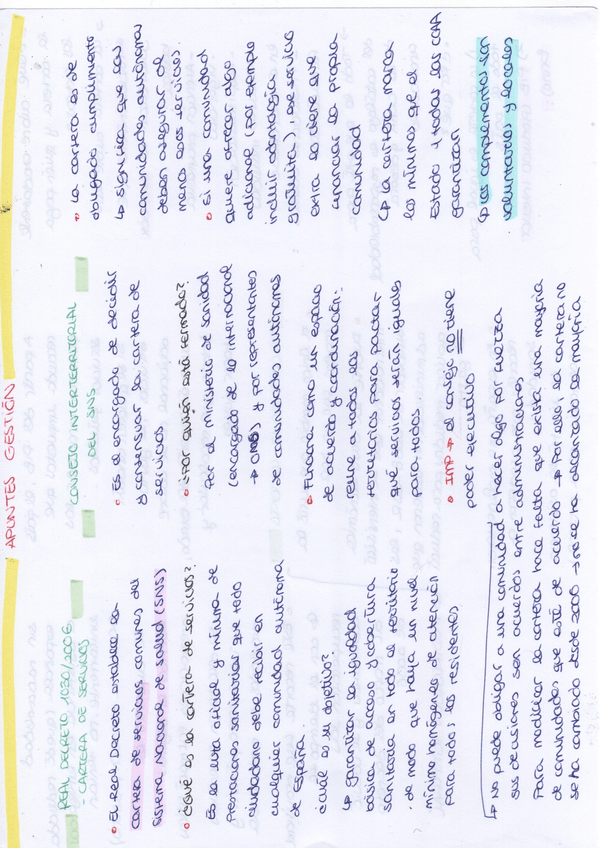 APUNTES GESTIÓN
REAL DECRETO 1030/2006
- CARTERA DE SERVICIOS
• El Real Decreto establece la
cartera de servicios comunes del
Sistema Nacional de Salud (SNS)
• ¿Qué es la cartera de servicios?
Es la lista oficial y mínima de
Prestaciones sanitarias que todo
ciudadano debe recibir en
cualquier comunidad autónoma
de España.
¿cuál es su objetivo?
↳ garantizar la igualdad
básica de acceso y cobertura
sanitaria en todo el territorio
de modo que haya un nivel
mínimo homogéneo de atención
para todos los residentes
CONSEJO INTERTERRITORIAL
DEL SNS
• Es el encargado de decidir
y consensuar la cartera de
servicios
• ¿Por quién está formado?
Por el ministerio de sanidad
(encargado de lo internacional
→ OMS) y por representantes
de comunidades autónomas
• Funciona como un espacio
de acuerdo y coordinación:
reune a todos los
territorios para pactar
qué servicios serán iguales
para todos.
• IMP → el consejo no tiene
poder ejecutivo
↳ No puede obligar a una comunidad a hacer algo por fuerza
sus decisiones son acuerdos entre administraciones
Para modificar la cartera hace falta que exista una mayoría
de comunidades que esté de acuerdo → Por ello, la cartera no
se ha cambiado desde 2006 → no se ha alcanzado la mayoría
• La cartera es de
obligado cumplimiento
↳ significa que las
comunidades autónomas
deben asegurar al
menos esos servicios.
• Si una comunidad
quiere ofrecer algo
adicional (por ejemplo
incluir odontología
gratuita), ese servicio
extra lo tiene que
financiar la propia
comunidad
↳ la cartera marca
los mínimos que el
Estado y todas las CCAA
garantizan
↳ los complementos son
voluntarios y locales